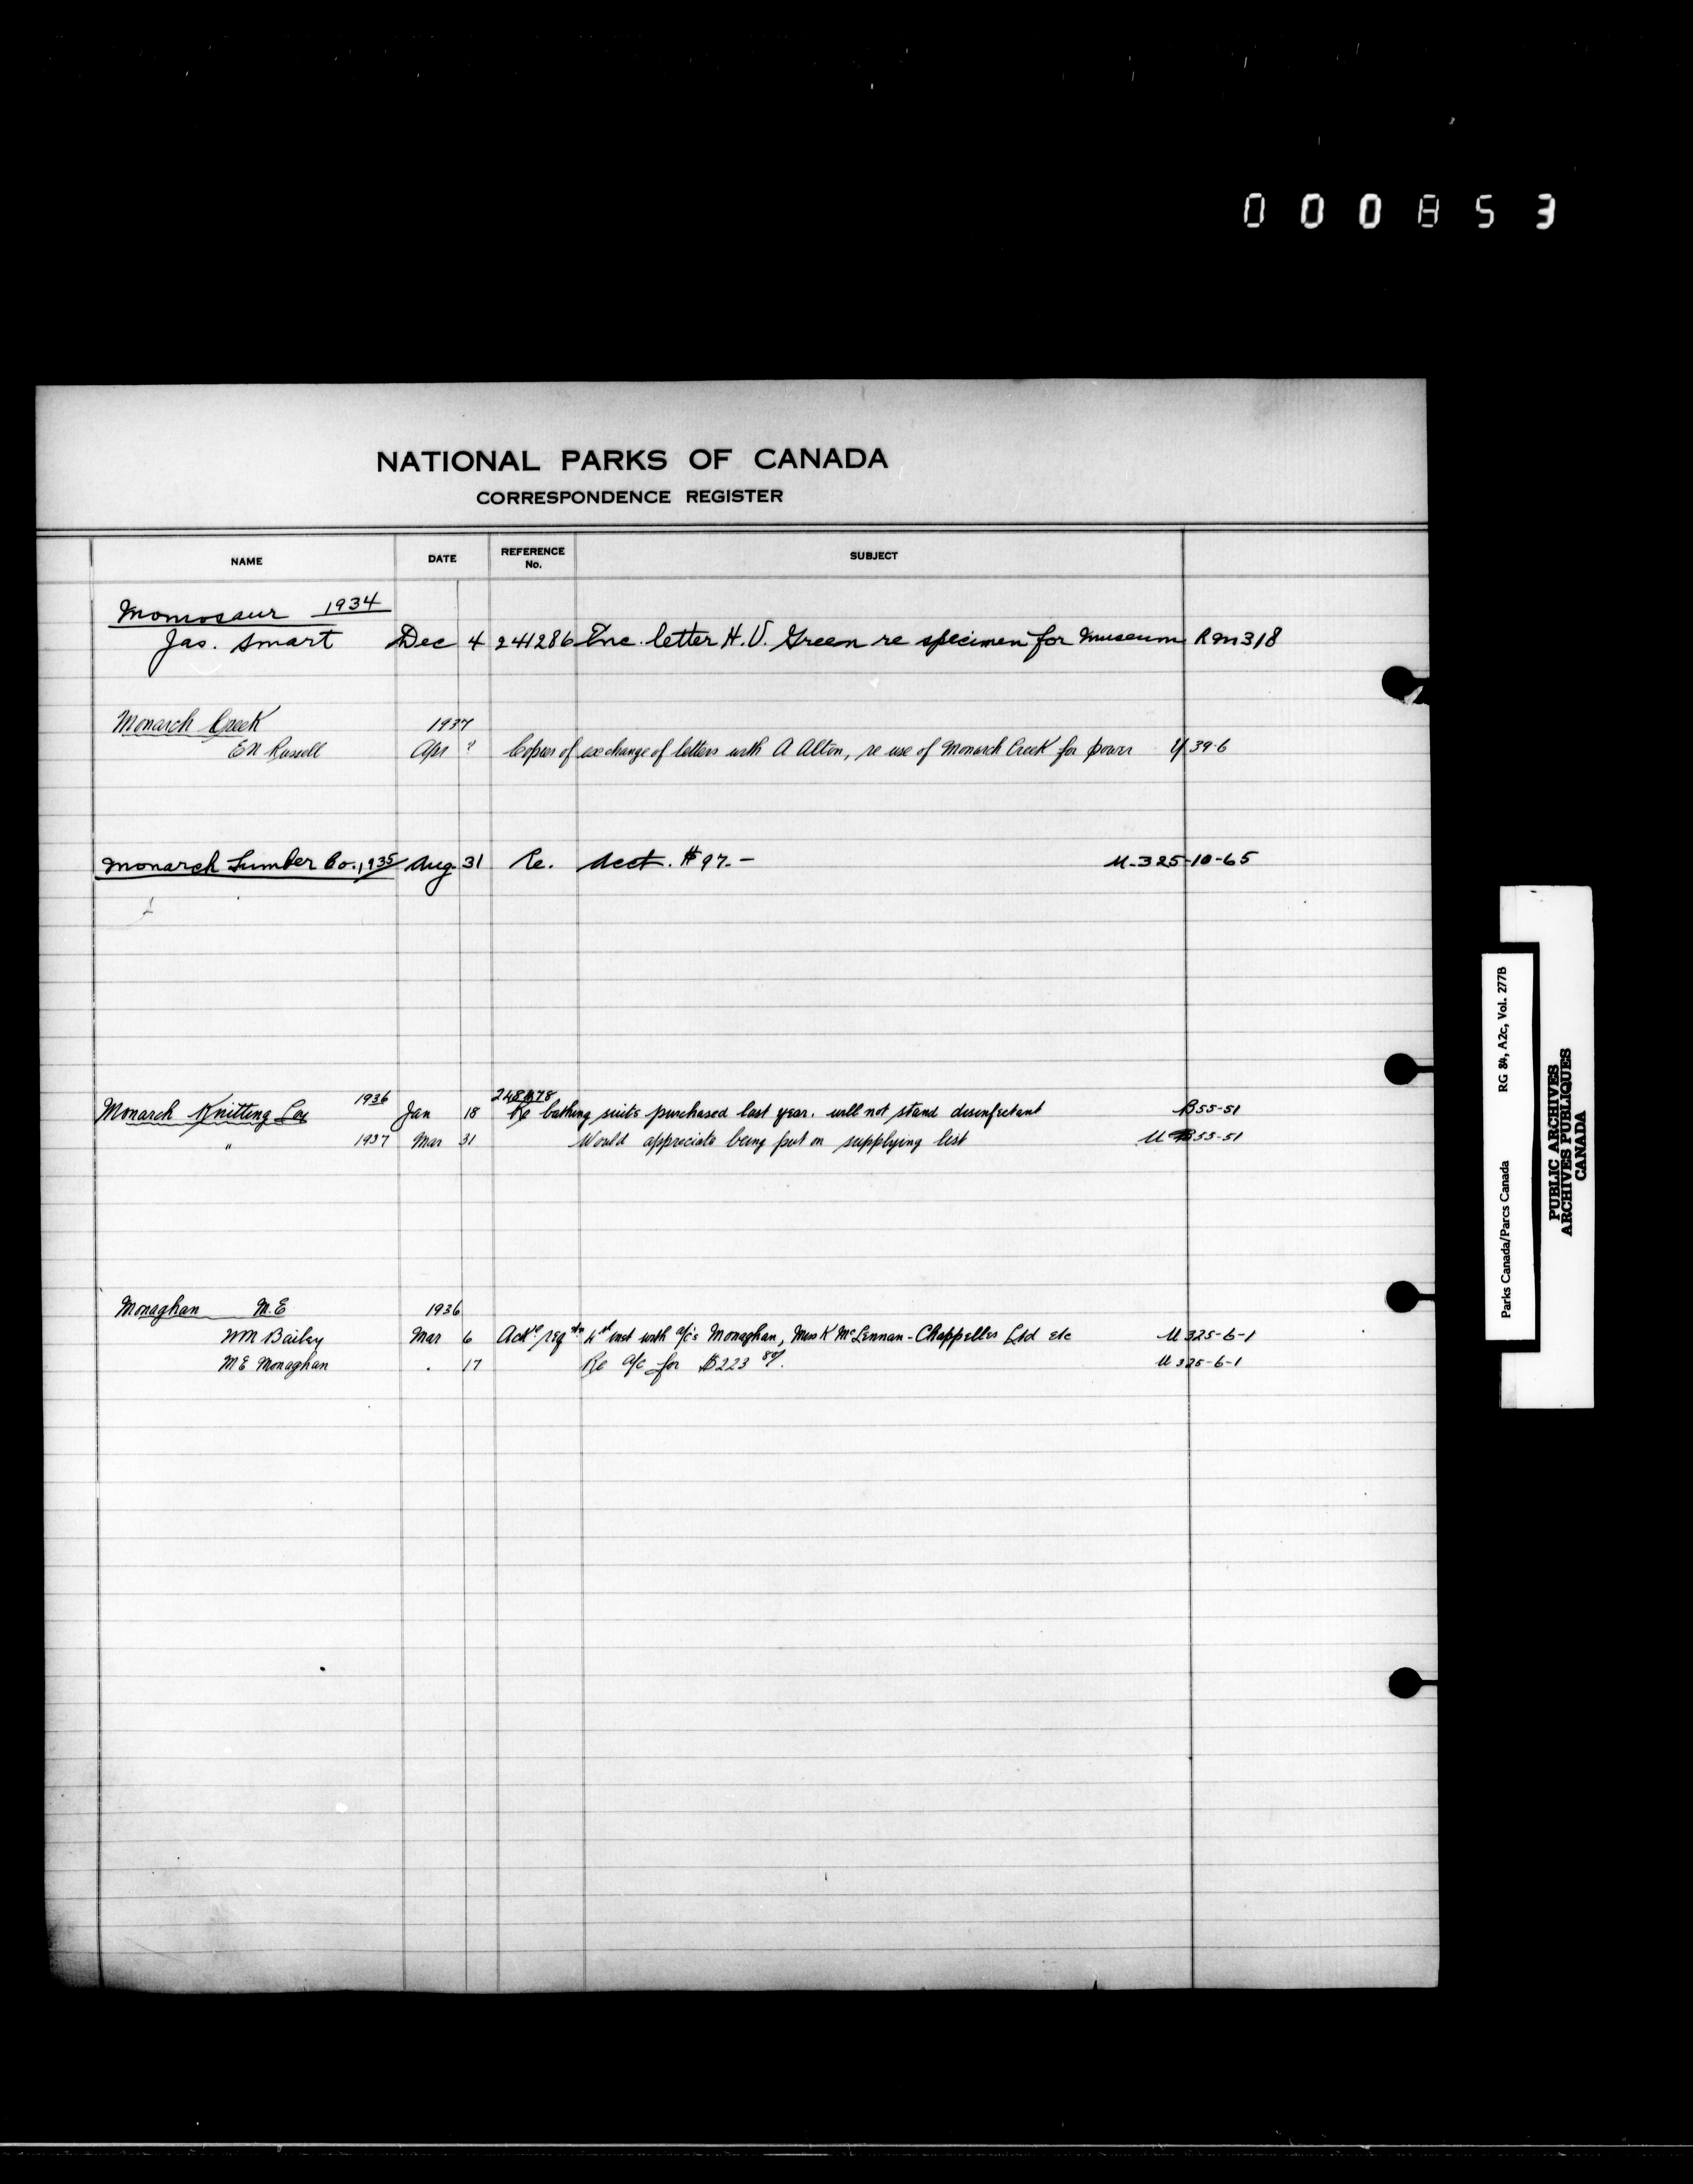 000853
NATIONAL PARKS OF CANADA
CORRESPONDENCE REGISTER
NAME DATE REFERENCE No. SUBJECT
Momosaur 1934
Jas. Smart Dec 4 241286 Enc. letter H.V. Green re specimen for museum RM318
Monarch Creek 1937
EN Russell Apr ? Copies of exchange of letters with A Alton, re use of Monarch Creek for power Y 39-6
Monarch Lumber Co., 1935 Aug. 31 Re. Acct. $97.- U-325-10-65
Monarch Knitting Co 1936 Jan 18 Re bathing suits purchased last year. will not stand disinfectant B55-51
" 1937 Mar 31 Would appreciate being put on supplying list U B55-51
Monaghan M.E 1936
WM Bailey Mar 6 inst with a/c's Monaghan, Miss K McLennan - Chappelles Ltd etc U 325-6-1
ME Monaghan . 17 Re a/c for $223 U 325-6-1
Parks Canada/Parcs Canada RG 84, A2c, Vol. 277B
PUBLIC ARCHIVES
ARCHIVES PUBLIQUES
CANADA